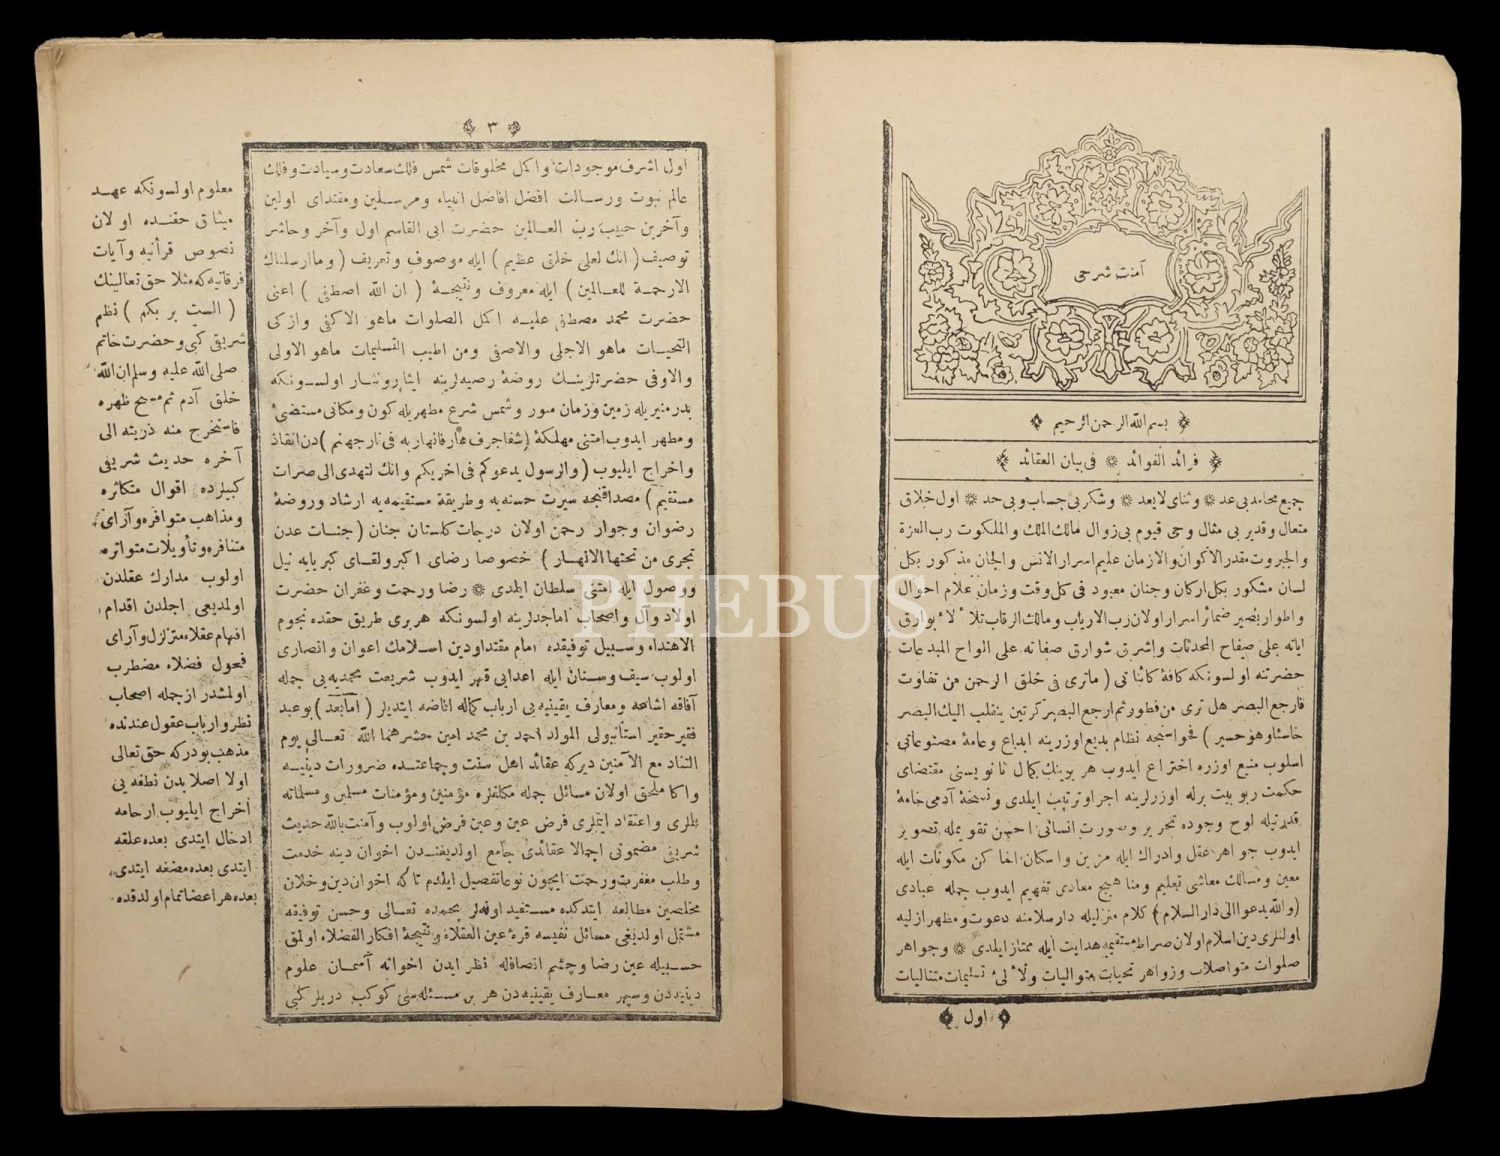 آمنت شرحی
بسم الله الرحمن الرحیم
فرائد الفوائد ❊ فی بیان العقائد
جمیع محامد بی عد ❊ وثنای لایعد ❊ وشکر بی حساب وبی حد ❊ اول خلاق
متعال وقدیر بی مثال وحی قیوم بی زوال مالك الملك والملکوت رب العزة
والجبروت مقدر الاکوان والازمان علیم اسرار الانس والجان مذکور بکل
لسان مشکور بکل ارکان وجنان معبود فی کل وقت وزمان علام احوال
واطوار بصیر ضمائر اسرار اولان رب الارباب ومالك الرقاب تلاٴلاٴ بوارق
ایاته علی صفاح المحدثات واشرق شوارق صفاته علی الواح المبدعات
حضرتنه اولسونکه کافهٔ کائناتی ( ماتری فی خلق الرحمن من تفاوت
فارجع البصر هل تری من فطور ثم ارجع البصر کرتین ینقلب الیك البصر
خاسئا وهو حسیر ) فحواسنجه نظام بدیع اوزرینه ابداع وعامهٔ مصنوعاتی
اسلوب منیع اوزره اختراع ایدوب هر برینك کمال ثانویسنی مقتضای
حکمت ربوبیت برله اوزرلرینه اجرا وترتیب ایلدی ونسخهٔ آدمی خامهٔ
قدرتیله لوح وجوده تحریر وصورت انسانی احسن تقویمله تصویر
ایدوب جواهر عقل وادراك ایله مزین واسکان انحا کن مکونات ایله
معین ومسالك معاشی تعلیم ومناهیج معادی تفهیم ایدوب جمله عبادی
(والله یدعوا الی دار السلام) کلام منزلیله دار سلامنه دعوت ومظهر ازلیه
اولنلری دین اسلام اولان صراط مستقیمه هدایت ایله ممتاز ایلدی ❊ وجواهر
صلوات متواصلات وزواهر تحیات متوالیات ولاٴلیٔ تسلیمات متتالیات
اول
٣
اول اشرف موجودات واکمل مخلوقات شمس فلك سعادت وسیادت وفلك
عالم نبوت ورسالت افضل افاضل انبیاء ومرسلین ومقتدای اولین
وآخرین حبیب رب العالمین حضرت ابی القاسم اول وآخر وحاشر
توصیف ( انك لعلی خلق عظیم ) ایله موصوف وتعریف ( وما ارسلناك
الا رحمة للعالمین ) ایله معروف ونتیجهٔ ( ان الله اصطفی ) اعنی
حضرت محمد مصطفی علیه اکمل الصلوات ماهو الاکفی وازکی
التحیات ماهو الاجلی والاصفی ومن اطیب التسلیمات ماهو الاولی
والاوفی حضرتلرینك روضهٔ رصیه لرینه ایثار ونثار اولسونکه
بدر منیریله زمین وزمان منور وشمس شرع مطهریله کون ومکانی مستضئ
ومطهر ایدوب امتنی مهلکهٔ (شفا جرف هار فانهار به فی نار جهنم) دن انقاذ
واخراج ایلیوب (والرسول یدعوکم فی اخریکم وانك لتهدی الی صراط
مستقیم) مصداقنجه سیرت حسنه یه وطریقهٔ مستقیمه یه ارشاد وروضهٔ
رضوان وجوار رحمن اولان درجات کلستان جنان (جنات عدن
تجری من تحتها الانهار) خصوصا رضای اکبر ولقای کبریایه نیل
ووصول ایله امتنی سلطان ایلدی ❊ رضا ورحمت وغفران حضرت
اولاد وآل واصحاب اماجدلرینه اولسونکه هربری طریق حقده نجوم
الاهتداء وسبیل توفیقده امام مقتدا ودین اسلامك اعوان وانصاری
اولوب سیف وسنان ایله اعدایی قهر ایدوب شریعت محمدیه یی جمله
آفاقه اشاعه ومعارف یقینیه یی ارباب کماله افاضه ایتدیلر ( اما بعد ) بو عبد
فقیر حقیر استانبولی المولد احمد بن محمد امین حشرهما الله تعالی یوم
التناد مع الآمنین دیرکه عقائد اهل سنت وجماعتده ضرورات دینیه
واکا ملحق اولان مسائل جمله مکلفلره مؤمنین ومؤمنات مسلمین ومسلماته
بیلری واعتقاد ایتملری فرض عین وعین فرض اولوب وآمنت بالله حدیث
شریفی مضمونی اجمالا عقائدی جامع اولدیغندن اخوان دینه خدمت
وطلب مغفرت ورحمت ایچون نوعا تفصیل ایلدم تا که اخوان دین وخلان
مخلصین مطالعه ایتدکده مستفید اوله لر بحمده تعالی وحسن توفیقه
مشتمل اولدیغی مسائل نفیسه قرة عین العقلاء ونتیجهٔ افکار الفضلاء اولمق
حسبیله عین رضا وچشم انصافله نظر ایدن اخوانه آسمان علوم
دینیه دن وسپهر معارف یقینیه دن هر بر مسئله سی کوکب دریلر کبی
معلوم اولسونکه عهد
میثاق حقنده اولان
نصوص قرآنیه وآیات
فرقانیه که مثلا حق تعالینك
( الست بربکم ) نظم
شریفی کبی وحضرت خاتم
صلی الله علیه وسلم ان الله
خلق آدم ثم مسح ظهره
فاستخرج منه ذریته الی
آخره حدیث شریفی
کبیلرده اقوال متکاثره
ومذاهب متوافره وآرای
متنافره وتأویلات متواتره
اولوب مدارك عقلدن
اولمدیغی اجلدن اقدام
افهام عقلاء متزلزل وآرای
فحول فضلاء مضطرب
اولمشدر ازجمله اصحاب
نظر وارباب عقول عندنده
مذهب بودرکه حق تعالی
اولا اصلابدن نطفه یی
اخراج ایلیوب ارحامه
ادخال ایتدی بعده علقه
ایتدی بعده مضغه ایتدی
بعده هر اعضا تمام اولدقده
PHEBUS